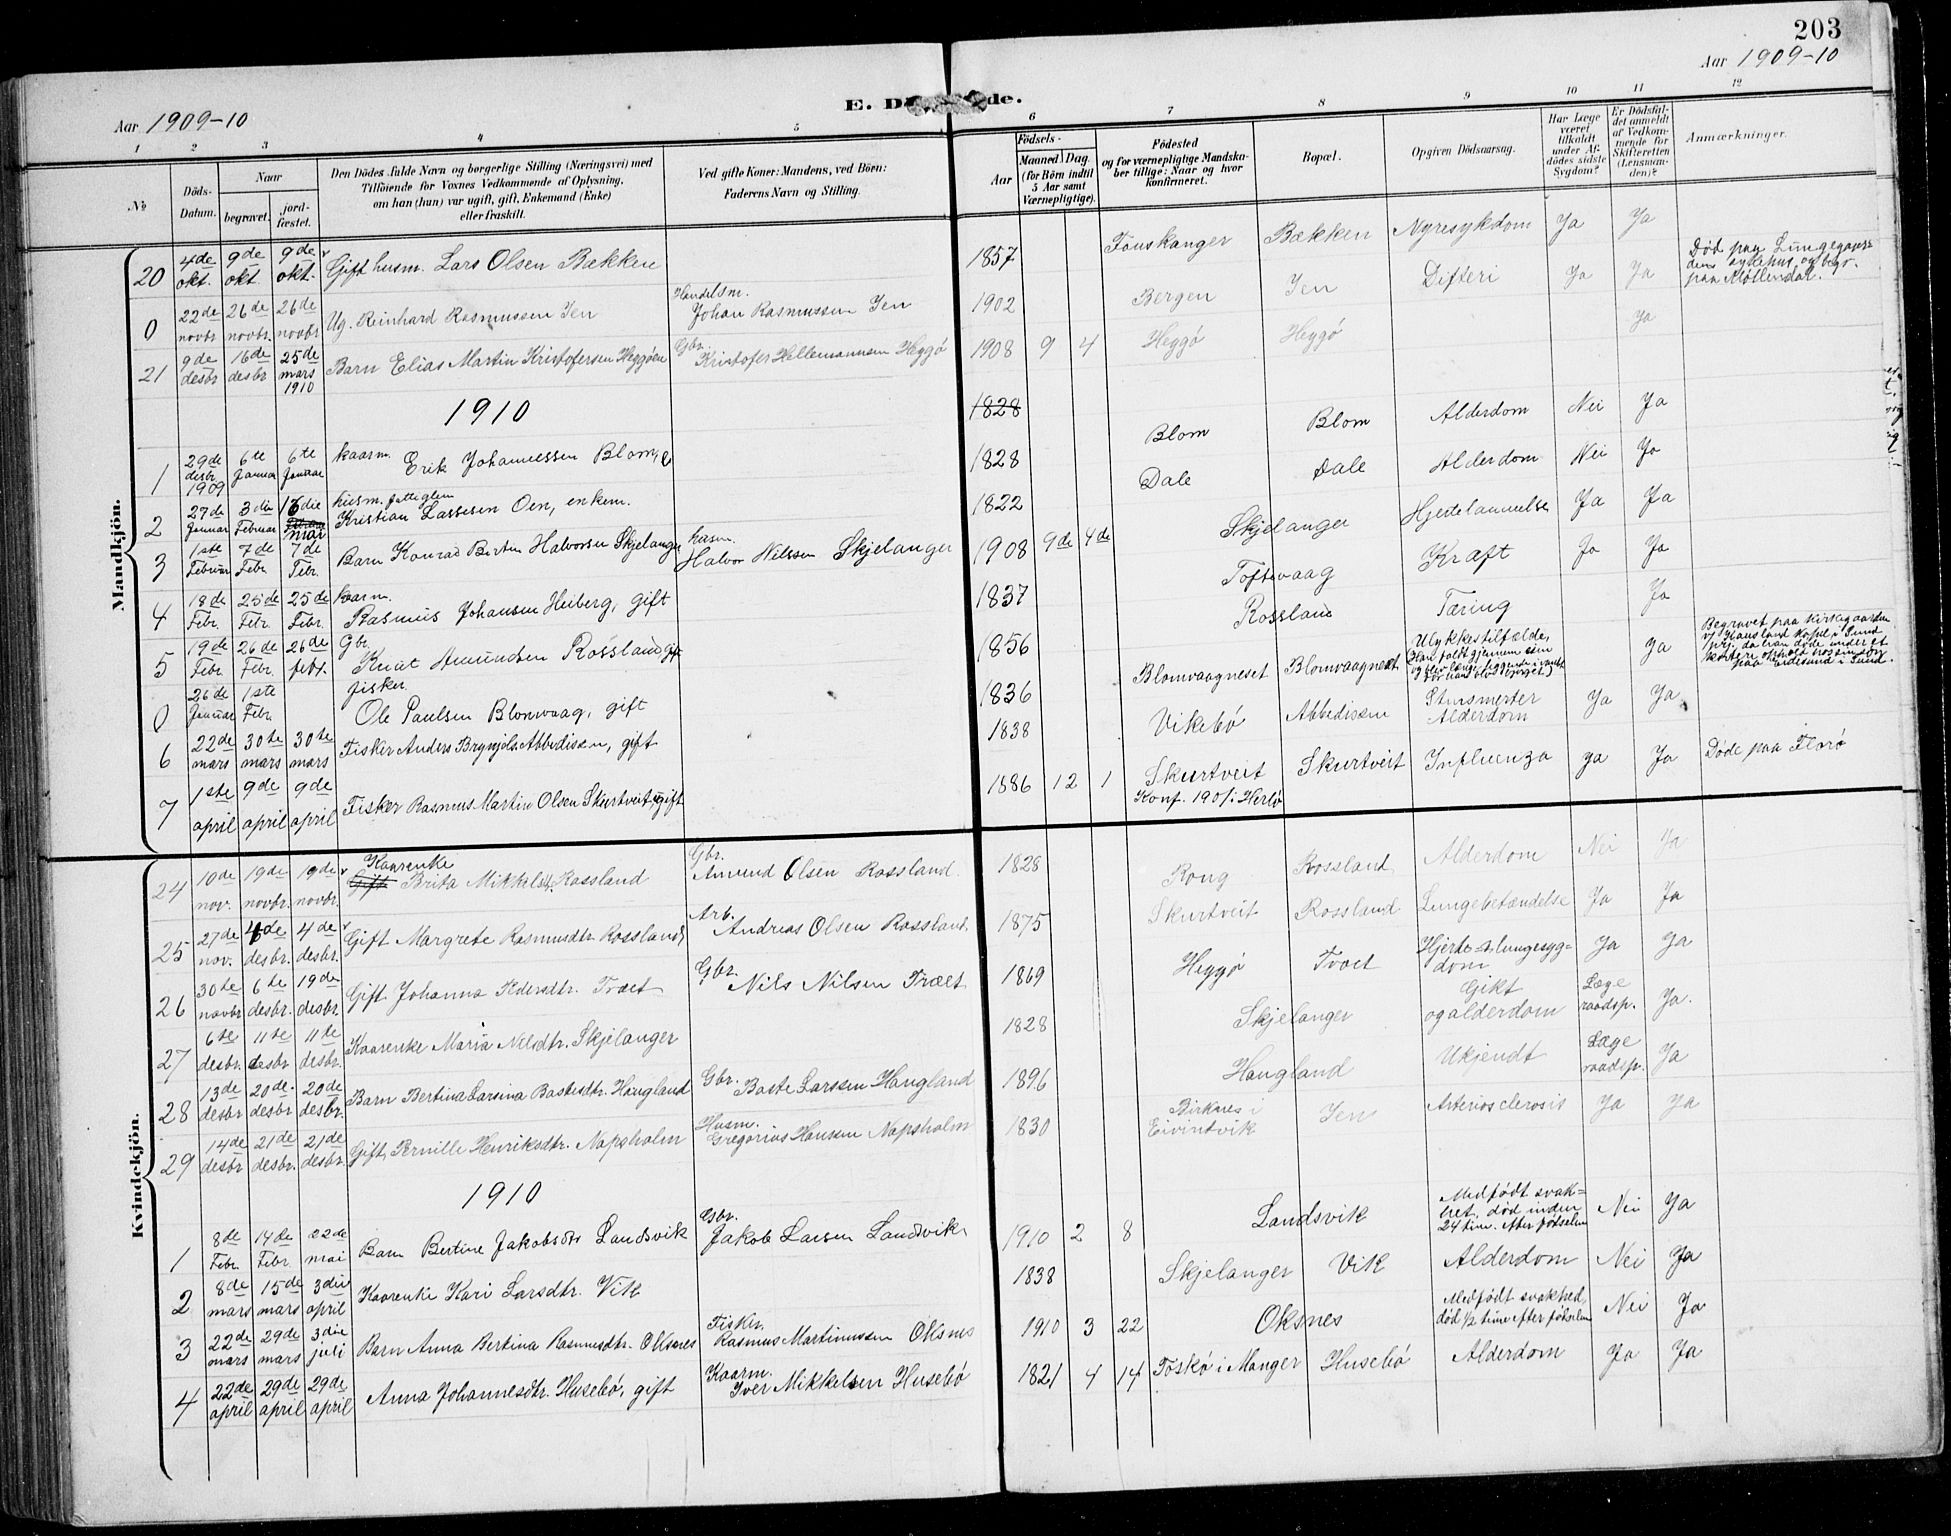 203
Aar 1909-10
Aar 1909-10
E. D de.
1 2 3 4 5 6 7 8 9 10 11 12
№
Döds-Datum.
Naar
begravet.
jord-fæstet.
Den Dödes fulde Navn og borgerlige Stilling (Næringsvei) med
Tilföiende for Voxnes Vedkommende af Oplysning,
om han (hun) var ugift, gift, Enkemand (Enke)
eller fraskilt.
Ved gifte Koner: Mandens, ved Börn:
Faderens Navn og Stilling.
Födsels-
Aar
Maaned Dag.
(for Börn indtil
5 Aar samt
Værnepligtige).
Födested
og for værnepligtige Mandska-
ber tillige: Naar og hvor
konfirmeret.
Bopæl.
Opgiven Dödsaarsag.
Har Læge
været
tilkaldt
under Af-
dödes sidste
Sygdom?
Er Dödsfal-
det anmeldt
af Vedkom-
mende for
Skifteretten
(Lensman-
den)?
Anmærkninger.
Mandkjön.
20 4de okt. 9de okt 9de okt. Gift husm. Lars Olsen Bækken 1857 Fouskanger Bækken Nyresykdom Ja Ja
0 22de novbr 26de novbr. 26de novbr Ug. Reinhard Rasmussen Jen Handelsm. Johan Rasmussen Jen 1902 Bergen Jen Difteri Ja Ja Död paa Lungegaards- dens sykehus og begr. paa Möllendal.
21 9de desbr 16de desbr 25de mars 1910 Barn Elias Martin Kristofersen Heggöen Gbr. Kristofer Hellemannsen Heggö 1908 9 4 Heggö Heggö Ja
1910
1828
1 29de desbr 1909 6te Januar 6te Januar kaarm. Erik Johannessen Blom, 1828 Blom Blom Alderdom Nei Ja
2 27de Januar 3die Februar 16die mar husm. fattiglem Kristian Lassesen Oen, enkem. 1822 Dale Dale Alderdom Nei Ja
3 1ste Februar 7de Febr. 7de Febr. Barn Konrad Bertin Halvorsen Skjelanger husm. Halvor Nilssen Skjelanger 1908 9de 4de Skjelanger Hjertelammelse Ja Ja
4 18de Febr. 25de Febr. 25de Febr. kaarm. Rasmus Johansen Heiberg, gift 1837 Toftevaag Kræft Ja Ja
5 19de Febr 26de Febr. 26de febr. Gbr. Knut Amundsen Rossland gift 1856 Rossland Tæring Ja
0 26de Januar 1ste Febr. fisker Ole Paulsen Blomvaag, gift 1836 Blomvaagneset Blomvaagneset Ulykkestilfælde, (Han faldt gjennem isen og blev længe liggende i vandet før han blev bjerget) Ja Begravet paa Kirkegaarden v/ Hausland Kapel i Sund prgj. da han døde under et kortere ophold paa i Sund.
6 22de mars 30te mars 30te mars Fisker Anders Brynjels. Abbedissen, gift 1838 Vikebö Abbedissen Alderdom Ja Ja
7 1ste april 9de april 9de april Fisker Rasmus Martin Olsen Skurtveit, gift 1886 12 1 Skurtveit Konf. 1901 i Herlö Skurtveit Influenza Ja Ja Döde paa Florö
Kvindekjön.
24 10de nov. 19de novbr. 19de novbr. Gift Kaarenke Brita Mikkelsd. Rossland Gbr. Amund Olsen Rossland. 1828 Rong Rossland Alderdom Nei Ja
25 27de nov. 4de desbr. 4de desbr. Gift Margrete Rasmusdtr. Rossland Arb. Andreas Olsen Rossland 1875 Skurtveit Rossland Lungebetændelse Ja Ja
26 30te novbr 6te desbr. 19de desbr. Gift Johanna Pedersdtr. Træet Gbr. Nils Nilsen Træet 1869 Heggö Træet Hjerte- lungesyg= dom Ja Ja
27 6te desbr. 11te desbr. 11te desbr. Kaarenke Maria Nelsdtr. Skjelanger 1828 Skjelanger Gikt og alderdom Læge raadsp. Ja.
28 13de desbr 20de desbr 20de desbr. Barn Bertina Larsina Bastesdtr. Haugland Gbr. Baste Larssen Haugland 1896 Haugland Ukjendt Læge raadsp. Ja
29 14de desbr 21de desbr. 21de desbr. Gift Pernille Henriksdtr. Napsholm Husm. Gregorius Hansen Napsholm 1830 Birknes i Eivintvik Jen Arteriosclerosis Ja Ja
1910
1 8de Febr. 14de Febr. 22de mai Barn Bertine Jakobsdtr Landsvik Gbr. Jakob Larsen Landsvik 1910 2 8 Landsvik Medfödt svak= het, död inden 24 tim. efter fødselen Nei Ja
2 8de mars 15de mars 3die april Kaarenke Kari Larsdtr. Vik 1838 Skjelanger Vik Alderdom Nei Ja
3 22de mars 29de mars 3die juli Barn Anna Bertina Rasmusdtr. Oksnes Fisker. Rasmus Martinussen Oksnes 1910 3 22 Oksnes Medfödt svakhed, död ½ time efter fødselen Nei Ja
4 22de april 29de april 29de april Anna Johannesdtr. Husebö, gift Kaarm. Iver Mikkelsen Husebö 1821 4 14 Toskö i Manger Husebö Alderdom Ja Ja